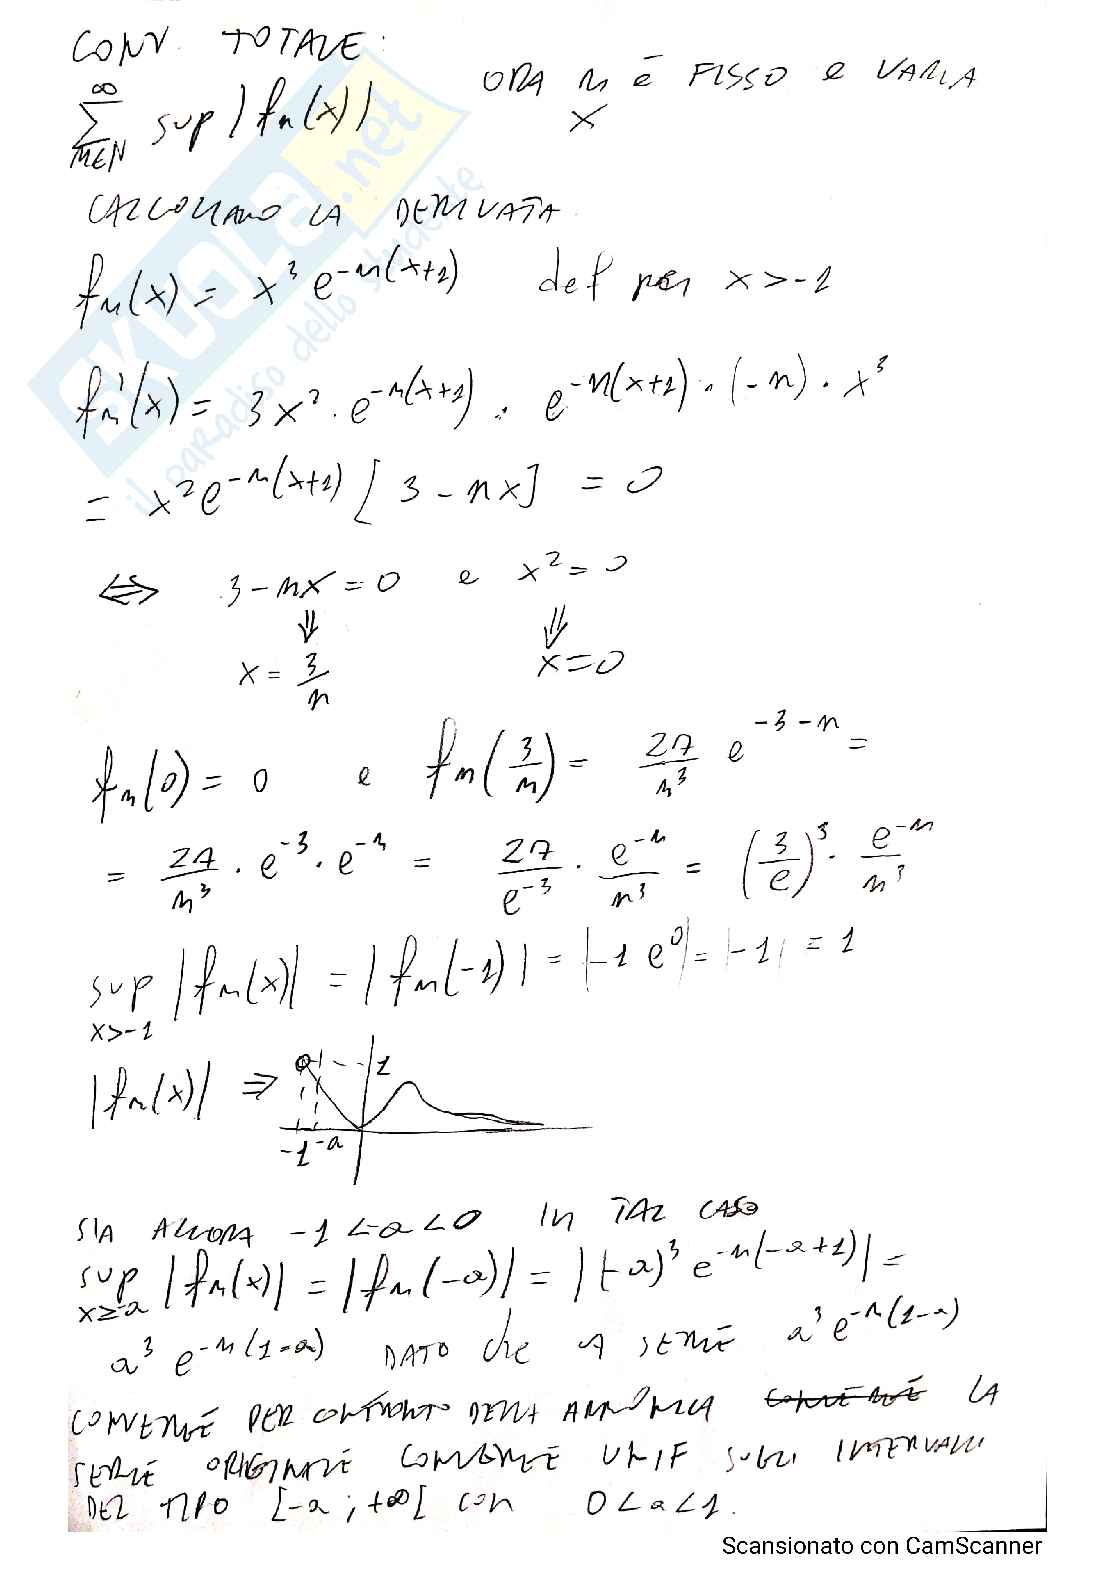 CONV. TOTALE:
∞
∑ sup |fn(x)| ORA n è FISSO e VARIA
n∈N x
CALCOLIAMO LA DERIVATA
fn(x) = x³ e^-n(x+1) def per x > -1
fn'(x) = 3x² · e^-n(x+1) · e^-n(x+1) · (-n) · x³
= x² e^-n(x+1) [3 - nx] = 0
⇔ 3 - nx = 0 e x² = 0
⇓ ⇓
x = 3/n x = 0
fn(0) = 0 e fn(3/n) = 27/n³ e^-3-n =
= 27/n³ · e^-3 · e^-n = 27/e^-3 · e^-n/n³ = (3/e)³ · e^-n/n³
sup |fn(x)| = |fn(-1)| = |-1 e^0| = |-1| = 1
x>-1
|fn(x)| ⇒ 1
-1 -a
SIA ALLORA -1 < -a < 0 IN TAL CASO
sup |fn(x)| = |fn(-a)| = |(-a)³ e^-n(-a+1)| =
x≥-a
a³ e^-n(1-a) DATO che LA SERIE a³ e^-n(1-a)
CONVERGE PER CONFRONTO DELLA ARMONICA CONVERGE LA
SERIE ORIGINALE CONVERGE UNIF SUGLI INTERVALLI
DEL TIPO [-a ; +∞[ con 0 < a < 1.
SKUOLA.net
il paradiso dello studente
Scansionato con CamScanner